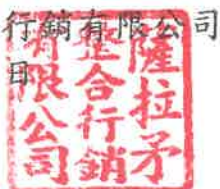 行銷有限公司
日
薩拉矛
整合行銷
有限公司